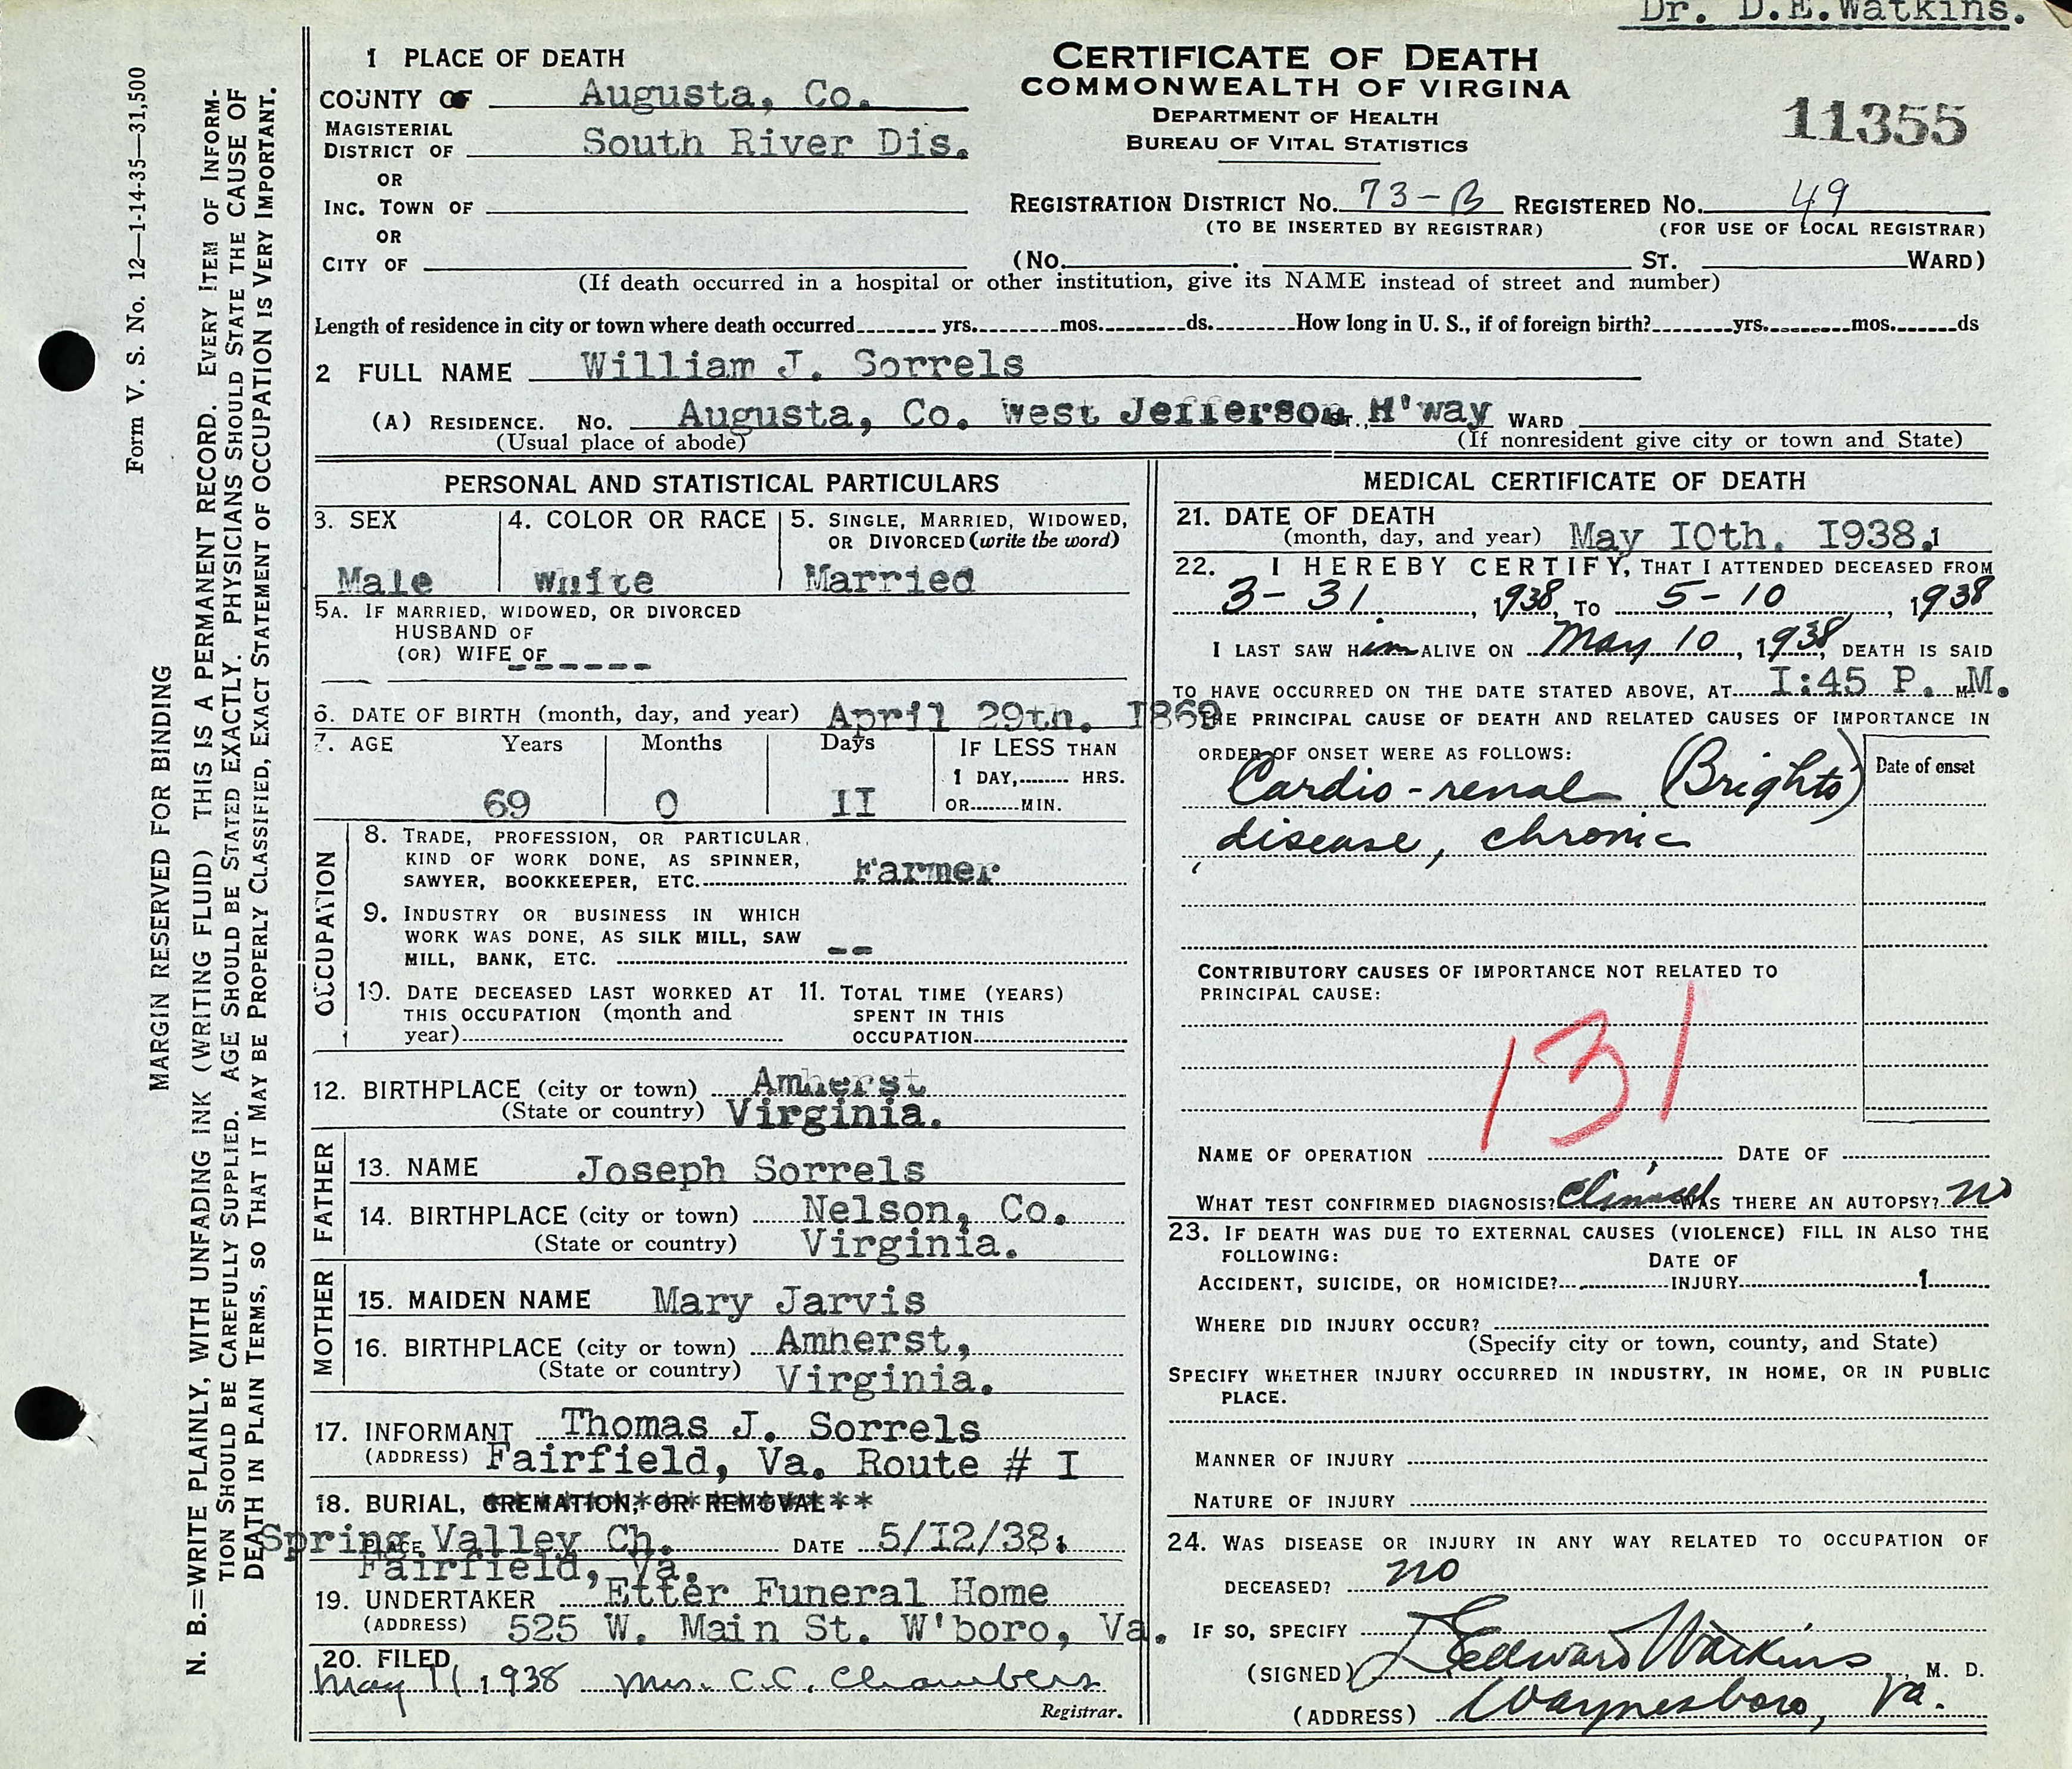 Dr. D.E.Watkins.
Form V. S. No. 12—1-14-35—31,500
MARGIN RESERVED FOR BINDING
N. B.=WRITE PLAINLY, WITH UNFADING INK (WRITING FLUID) THIS IS A PERMANENT RECORD. EVERY ITEM OF INFORM-
TION SHOULD BE CAREFULLY SUPPLIED. AGE SHOULD BE STATED EXACTLY. PHYSICIANS SHOULD STATE THE CAUSE OF
DEATH IN PLAIN TERMS, SO THAT IT MAY BE PROPERLY CLASSIFIED, EXACT STATEMENT OF OCCUPATION IS VERY IMPORTANT.
1 PLACE OF DEATH
COUNTY OF Augusta, Co.
MAGISTERIAL
DISTRICT OF South River Dis.
OR
INC. TOWN OF
OR
CITY OF
CERTIFICATE OF DEATH
COMMONWEALTH OF VIRGINA
DEPARTMENT OF HEALTH
BUREAU OF VITAL STATISTICS
11355
REGISTRATION DISTRICT NO. 73-B REGISTERED NO. 49
(TO BE INSERTED BY REGISTRAR) (FOR USE OF LOCAL REGISTRAR)
(NO. ST. WARD)
(If death occurred in a hospital or other institution, give its NAME instead of street and number)
Length of residence in city or town where death occurred yrs. mos. ds. How long in U. S., if of foreign birth? yrs. mos. ds
2 FULL NAME William J. Sorrels
(A) RESIDENCE. NO. Augusta, Co. West Jefferson ST., H'way WARD
(Usual place of abode) (If nonresident give city or town and State)
PERSONAL AND STATISTICAL PARTICULARS
3. SEX 4. COLOR OR RACE 5. SINGLE, MARRIED, WIDOWED,
OR DIVORCED (write the word)
Male White Married
5A. IF MARRIED, WIDOWED, OR DIVORCED
HUSBAND OF
(OR) WIFE OF ------
6. DATE OF BIRTH (month, day, and year) April 29th. I869
7. AGE Years Months Days IF LESS THAN
1 DAY, HRS.
69 0 II OR MIN.
OCCUPATION
8. TRADE, PROFESSION, OR PARTICULAR
KIND OF WORK DONE, AS SPINNER,
SAWYER, BOOKKEEPER, ETC. Farmer
9. INDUSTRY OR BUSINESS IN WHICH
WORK WAS DONE, AS SILK MILL, SAW
MILL, BANK, ETC. --
10. DATE DECEASED LAST WORKED AT 11. TOTAL TIME (YEARS)
THIS OCCUPATION (month and SPENT IN THIS
year) OCCUPATION
12. BIRTHPLACE (city or town) Amherst
(State or country) Virginia.
FATHER
13. NAME Joseph Sorrels
14. BIRTHPLACE (city or town) Nelson, Co.
(State or country) Virginia.
MOTHER
15. MAIDEN NAME Mary Jarvis
16. BIRTHPLACE (city or town) Amherst,
(State or country) Virginia.
17. INFORMANT Thomas J. Sorrels
(ADDRESS) Fairfield, Va. Route # I
18. BURIAL, CREMATION, OR REMOVAL **
PLACE Spring Valley Ch. DATE 5/I2/38.
Fairfield, Va.
19. UNDERTAKER Etter Funeral Home
(ADDRESS) 525 W. Main St. W'boro, Va.
20. FILED
May 11 1938 Mrs. C.C. Chambers
Registrar.
MEDICAL CERTIFICATE OF DEATH
21. DATE OF DEATH
(month, day, and year) May I0th. I938.1
22. I HEREBY CERTIFY, THAT I ATTENDED DECEASED FROM
3-31, 1938, TO 5-10, 1938
I LAST SAW Him ALIVE ON May 10, 1938, DEATH IS SAID
TO HAVE OCCURRED ON THE DATE STATED ABOVE, AT I:45 P. M. M.
THE PRINCIPAL CAUSE OF DEATH AND RELATED CAUSES OF IMPORTANCE IN
ORDER OF ONSET WERE AS FOLLOWS:
Date of onset
Cardio-renal (Brights)
disease, chronic
CONTRIBUTORY CAUSES OF IMPORTANCE NOT RELATED TO
PRINCIPAL CAUSE:
131
NAME OF OPERATION DATE OF
WHAT TEST CONFIRMED DIAGNOSIS? Clinical WAS THERE AN AUTOPSY? no
23. IF DEATH WAS DUE TO EXTERNAL CAUSES (VIOLENCE) FILL IN ALSO THE
FOLLOWING:
DATE OF
ACCIDENT, SUICIDE, OR HOMICIDE? INJURY 1
WHERE DID INJURY OCCUR?
(Specify city or town, county, and State)
SPECIFY WHETHER INJURY OCCURRED IN INDUSTRY, IN HOME, OR IN PUBLIC
PLACE.
MANNER OF INJURY
NATURE OF INJURY
24. WAS DISEASE OR INJURY IN ANY WAY RELATED TO OCCUPATION OF
DECEASED? no
IF SO, SPECIFY
(SIGNED) D Edward Watkins, M. D.
(ADDRESS) Waynesboro, Va.